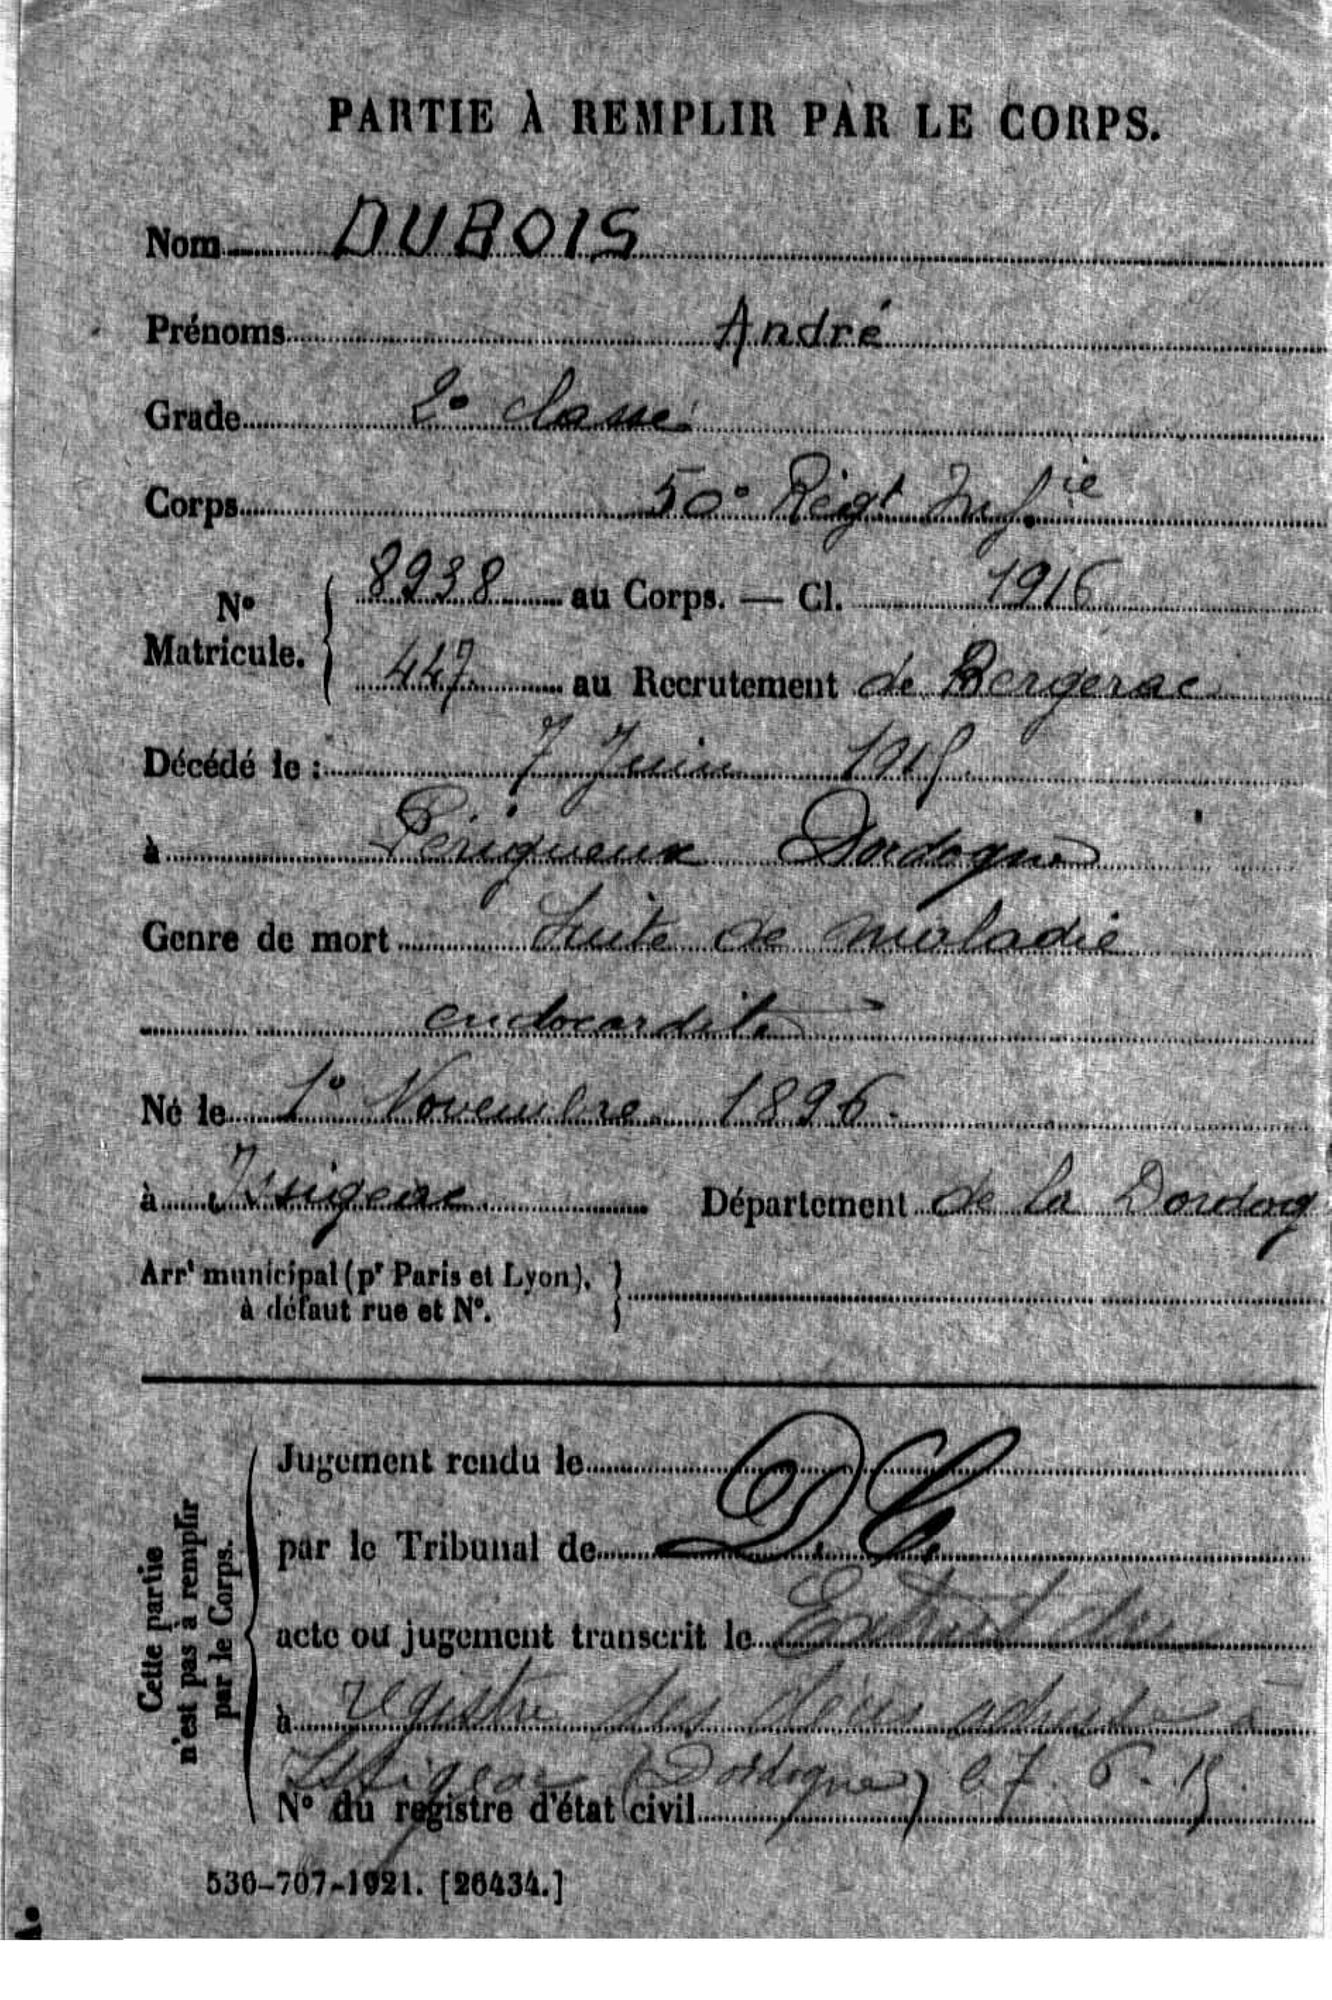 PARTIE À REMPLIR PAR LE CORPS.
Nom DUBOIS
Prénoms André
Grade 2e classe
Corps 50e Régt Infie
No Matricule. 8938 au Corps. — Cl. 1916
447 au Recrutement de Bergerac
Décédé le : 7 Juin 1915
à Périgueux Dordogne
Genre de mort Suite de maladie
endocardite
Né le 1o Novembre 1896.
à Issigeac Département de la Dordog
Arrt municipal (pr Paris et Lyon),
à défaut rue et No.
Cette partie n'est pas à remplir par le Corps.
Jugement rendu le
par le Tribunal de D.C.
acte ou jugement transcrit le Extrait du
à registre des décès à
Issigeac (Dordogne) le 7. 6. 15.
No du registre d'état civil
536-707-1921. [26434.]